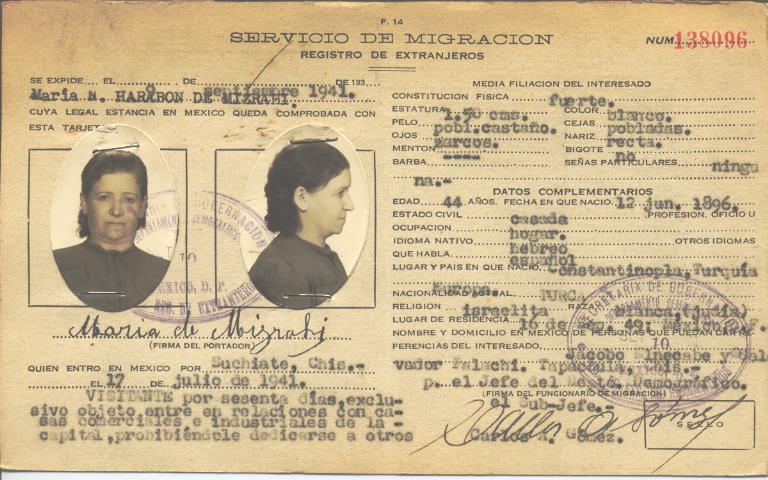 F. 14
SERVICIO DE MIGRACION
REGISTRO DE EXTRANJEROS
NUM. 138096
SE EXPIDE EL 9 DE septiembre 1941. DE 193
María N. HARABON DE MIZRAHI.
CUYA LEGAL ESTANCIA EN MEXICO QUEDA COMPROBADA CON
ESTA TARJETA
María de Mizrahi
(FIRMA DEL PORTADOR)
QUIEN ENTRO EN MEXICO POR Suchiate, Chis.-
EL 17 DE julio de 1941.
VISITANTE por sesenta días, exclu-
sivo objeto entre en relaciones con ca-
sas comerciales e industriales de la -
capital, prohibiéndole dedicarse a otros
MEDIA FILIACION DEL INTERESADO
CONSTITUCION FISICA fuerte.
ESTATURA 1.50 cms. COLOR blanco.
PELO pobl.castaño. CEJAS pobladas.
OJOS zarcos. NARIZ recta.
MENTON ---- BIGOTE no
BARBA SEÑAS PARTICULARES ningu
na.-
DATOS COMPLEMENTARIOS
EDAD 44 AÑOS. FECHA EN QUE NACIO 12 jun. 1896.
ESTADO CIVIL casada PROFESION, OFICIO U
OCUPACION hogar.
IDIOMA NATIVO hebreo OTROS IDIOMAS
QUE HABLA español
LUGAR Y PAIS EN QUE NACIO Constantinopla, Turquía
Europa.
NACIONALIDAD TURCA
RELIGION israelita RAZA blanca, (judía)
LUGAR DE RESIDENCIA 16 de Sep. 49. México, D.F.
NOMBRE Y DOMICILIO EN MEXICO DE PERSONAS QUE PUEDAN DAR RE-
FERENCIAS DEL INTERESADO. Jacobo
vador Palachi. Tapachula, Chis.-
p. el Jefe del Depto. Demográfico.
(FIRMA DEL FUNCIONARIO DE MIGRACION)
el Sub-Jefe.-
Carlos A. Gómez.
SELLO